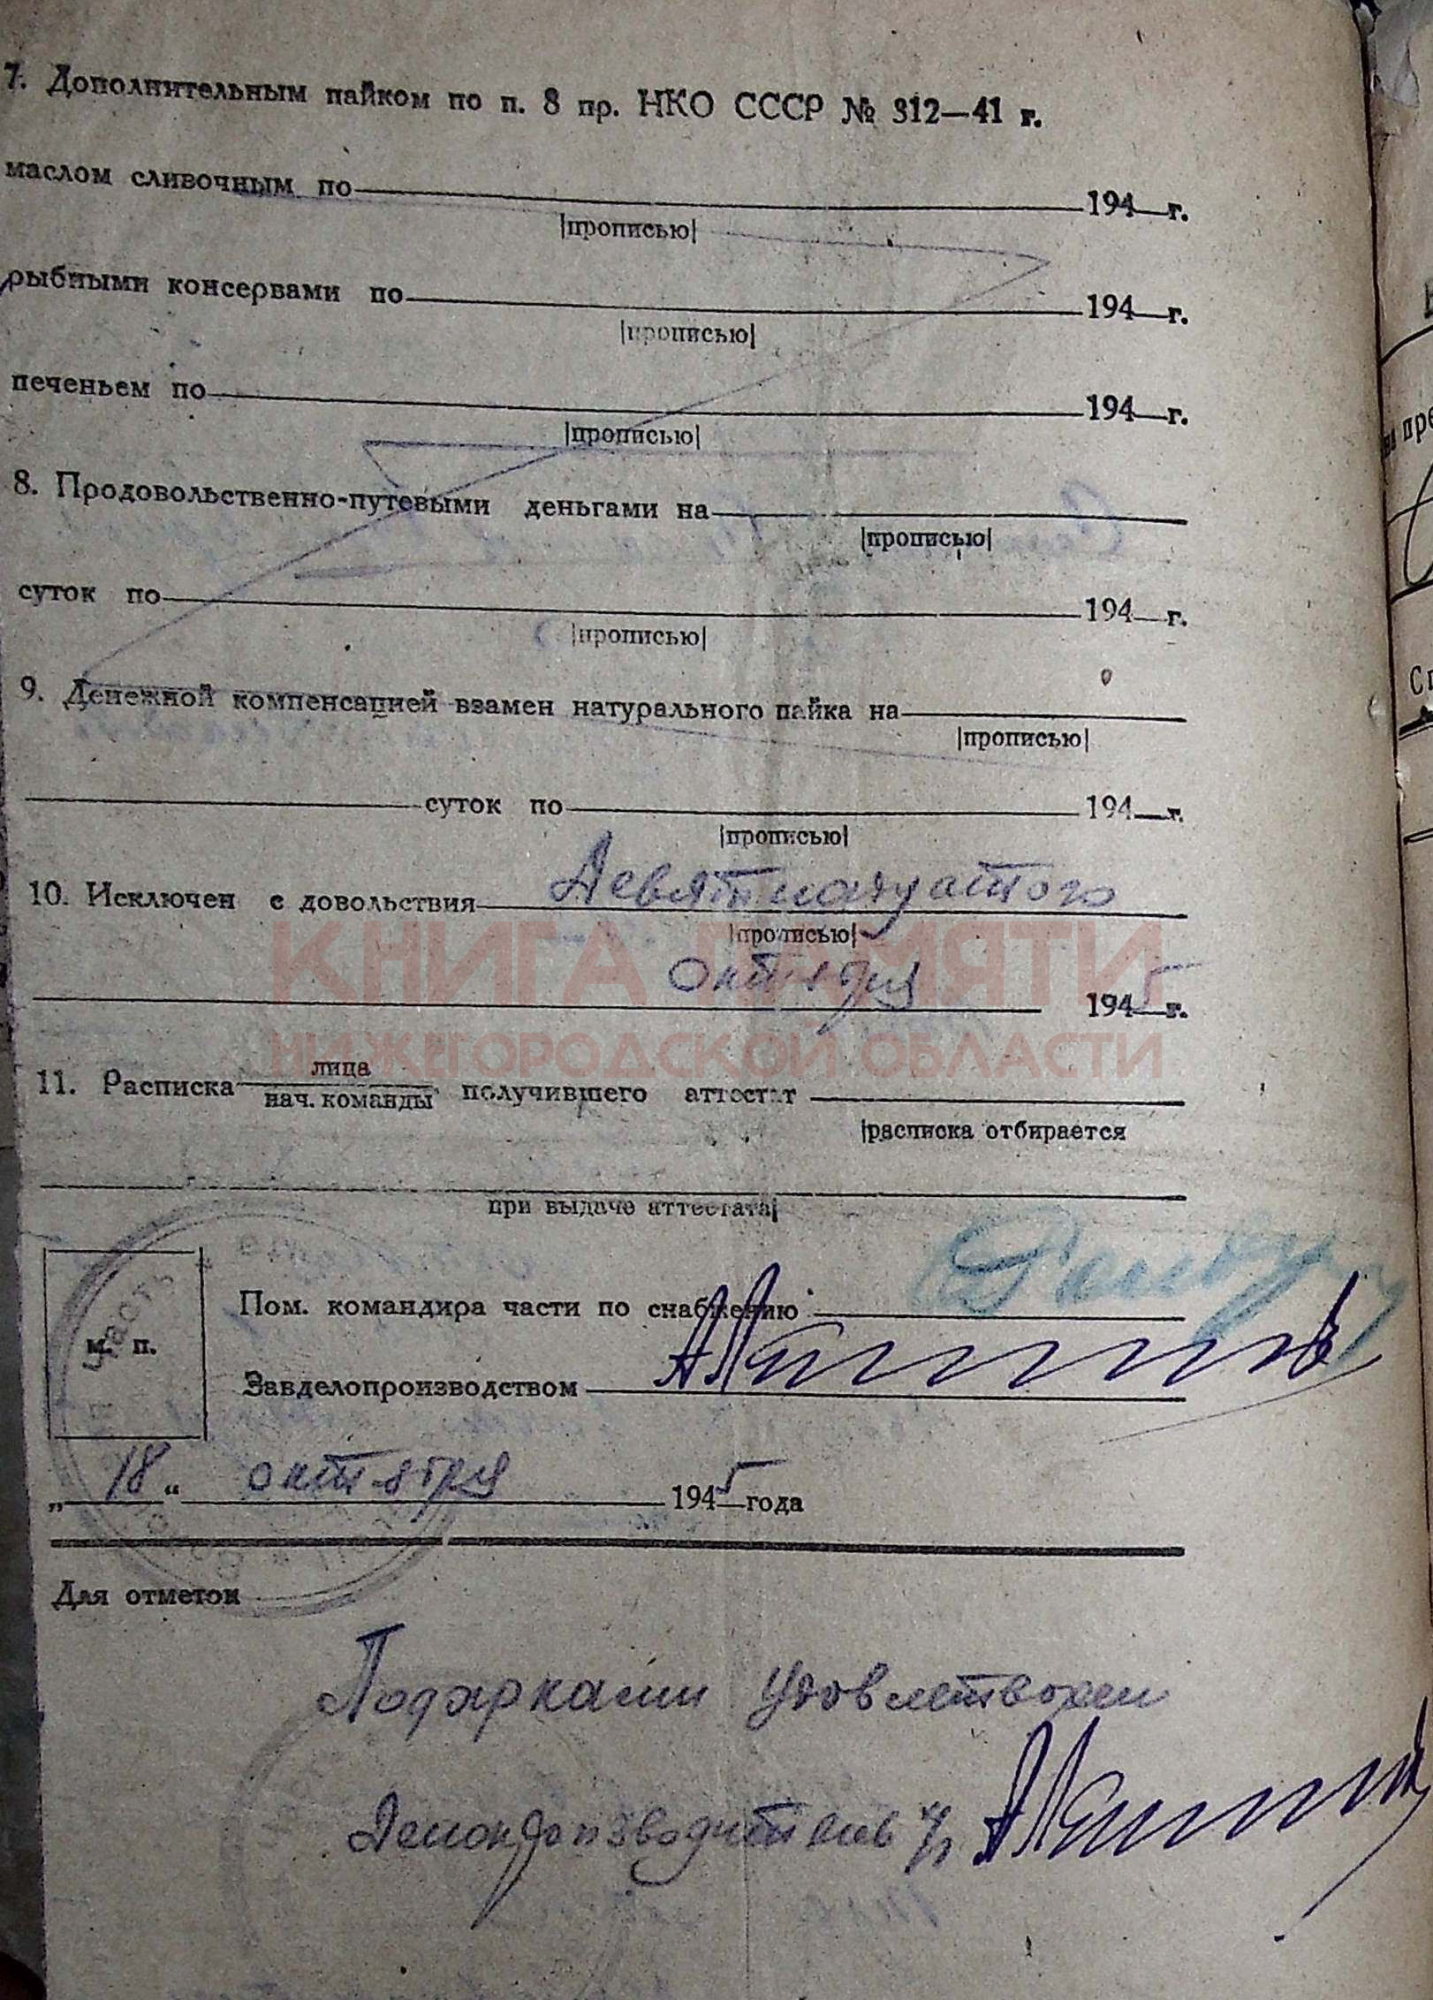 7. Дополнительным пайком по п. 8 пр. НКО СССР № 312—41 г.
маслом сливочным по 194 г.
|прописью|
рыбными консервами по 194 г.
|прописью|
печеньем по 194 г.
|прописью|
8. Продовольственно-путевыми деньгами на
|прописью|
суток по 194 г.
|прописью|
9. Денежной компенсацией взамен натурального пайка на
|прописью|
суток по 194 г.
|прописью|
10. Исключен с довольствия Девятнадцатого
|прописью|
октября 1945 г.
КНИГА ПАМЯТИ
НИЖЕГОРОДСКОЙ ОБЛАСТИ
11. Расписка лица
нач. команды получившего аттестат
|расписка отбирается
при выдаче аттестата|
Пом. командира части по снабжению
м. п.
Завделопроизводством
„18“ октября 1945 года
Для отметок
Подарками удовлетворен
Делопроизводитель ч/п